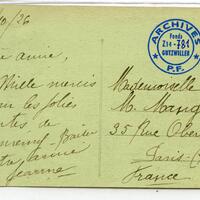 10/26
e amie,
Mille mercis
ur les jolies
tes de
Baite
amie
Jeanne
ARCHIVES
Fonds
Z1e-781
GUTZWILLER
P.F.
Mademoiselle
M. Mang
35 Rue Ober
Paris
France